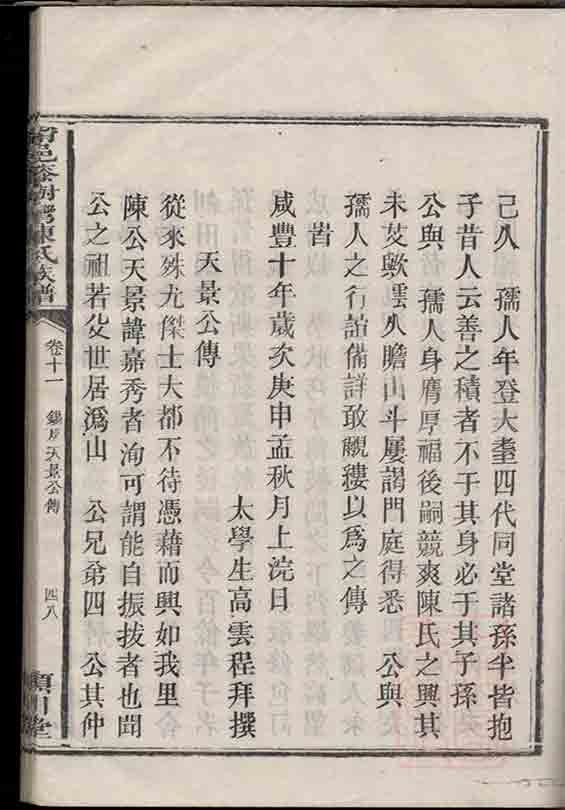 己久　孺人年登大耋四代同堂諸孫半皆抱
子昔人云善之積者不于其身必于其子孫
公與　孺人身膺厚福後嗣競爽陳氏之興其
未艾歟雲久瞻山斗屢謁門庭得悉　公與
孺人之行誼備詳敢覼縷以為之傳
旹
咸豐十年歲次庚申孟秋月上浣日
太學生高雲程拜撰
天景公傳
從來殊尤傑士大都不待憑藉而興如我里
陳公天景諱嘉秀者洵可謂能自振拔者也聞
公之祖若父世居溈山　公兄弟四　公其仲
陳氏族譜
卷十一
天景公傳
四八
川堂